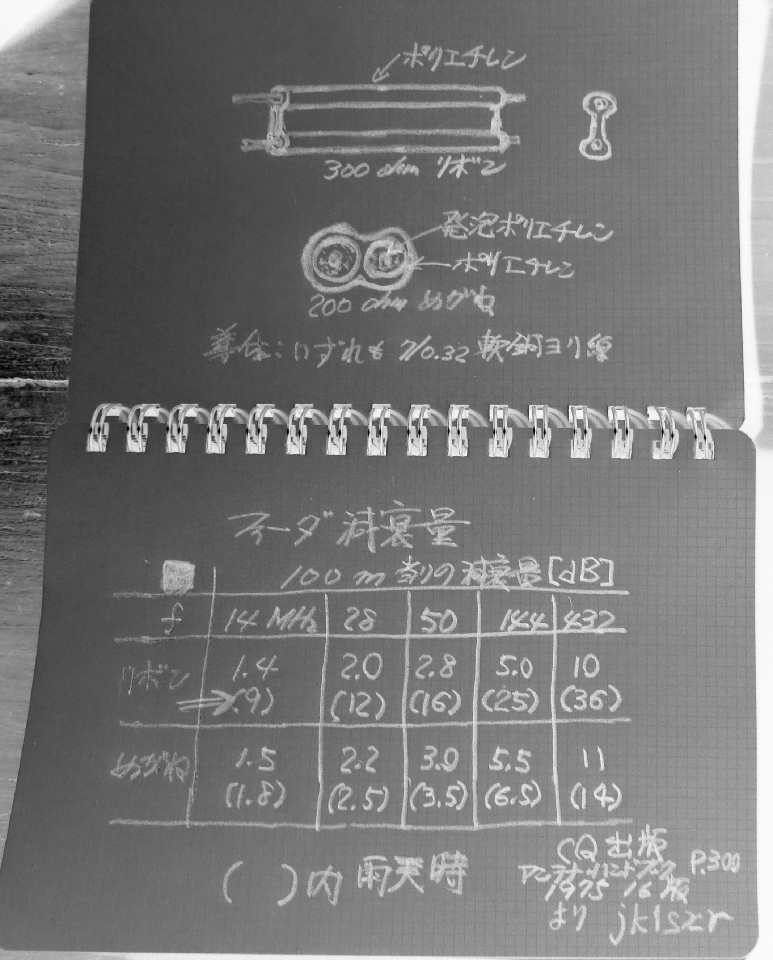 ポリエチレン
300 ohm リボン
発泡ポリエチレン
ポリエチレン
200 ohm めがね
導体：いずれも 7/0.32 軟銅ヨリ線
フィーダ 減衰量
100 m 当りの減衰量[dB]
f 14 MHz 28 50 144 432
リボン 1.4 2.0 2.8 5.0 10
(9) (12) (16) (25) (36)
めがね 1.5 2.2 3.0 5.5 11
(1.8) (2.5) (3.5) (6.5) (14)
( )内 雨天時
CQ 出版
アンテナハンドブック P.300
1975 16版
より jk1sxr